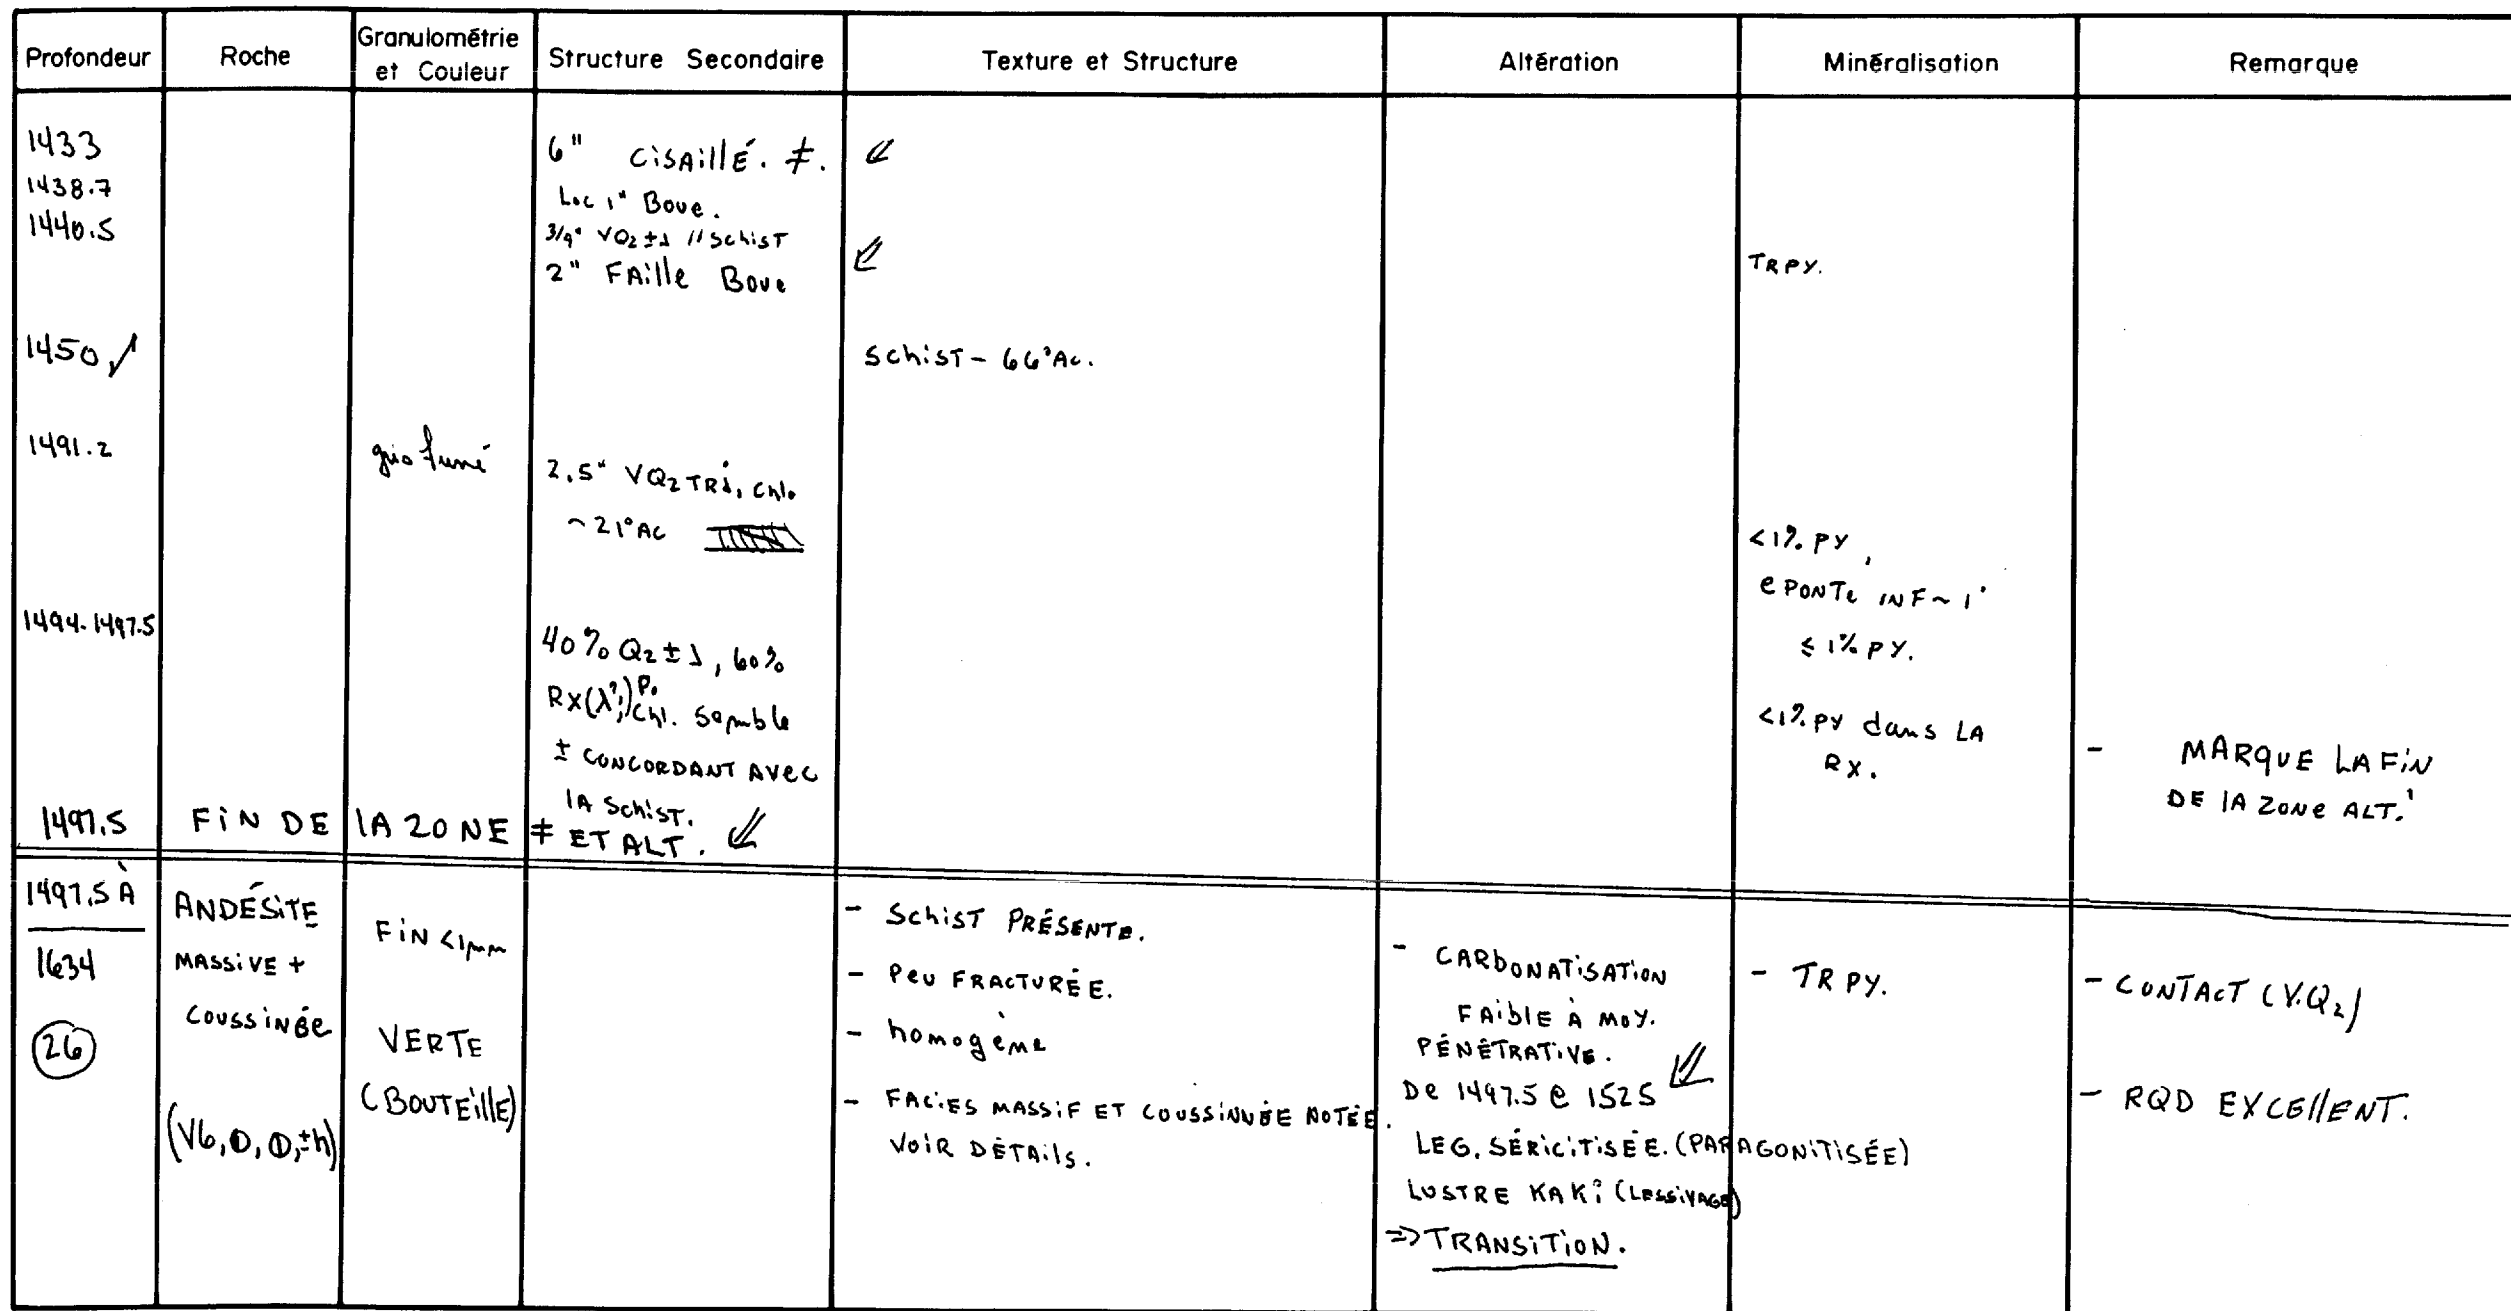 Profondeur Roche Granulométrie et Couleur Structure Secondaire Texture et Structure Altération Minéralisation Remarque
1433 6" CISAILLÉ. ≠.
1438.7 Loc 1" Boue.
1440.5 3/4" VQ2 ± // SchIST
2" FAille Boue TR PY.
1450 SchIST - 66°AC.
1491.2 gris fumé 2.5" VQ2 TR, chl.
~21°AC
<1% PY,
EPONTE INF ~ 1'
≤ 1% PY.
1494-1497.5 40% Q2 ±, 60%
RX(λ?,) Po. Chl. Semble
± CONCORDANT AVEC
LA SchIST.
<1% PY dans LA
RX.
- MARQUE LA FIN
DE LA ZONE ALT.
1497.5 FIN DE LA ZONE ≠ ET ALT.
1497.5 À
1634
26
ANDÉSITE
MASSIVE +
COUSSINÉE
(V6, ±h)
FIN <1mm
VERTE
(BOUTEILLE)
- SchIST PRÉSENTE.
- Peu FRACTURÉE.
- homogène
- FACIES MASSIF ET COUSSINNÉE NOTÉE.
VOIR DÉTAILS.
- CARBONATISATION
FAIBLE À MOY.
PÉNÉTRATIVE.
De 1497.5 @ 1525
LEG. SÉRICITISÉE. (PARAGONITISÉE)
LUSTRE KAKI (LESSIVAGE)
=> TRANSITION.
- TR PY.
- CONTACT (V.Q2)
- RQD EXCELLENT.